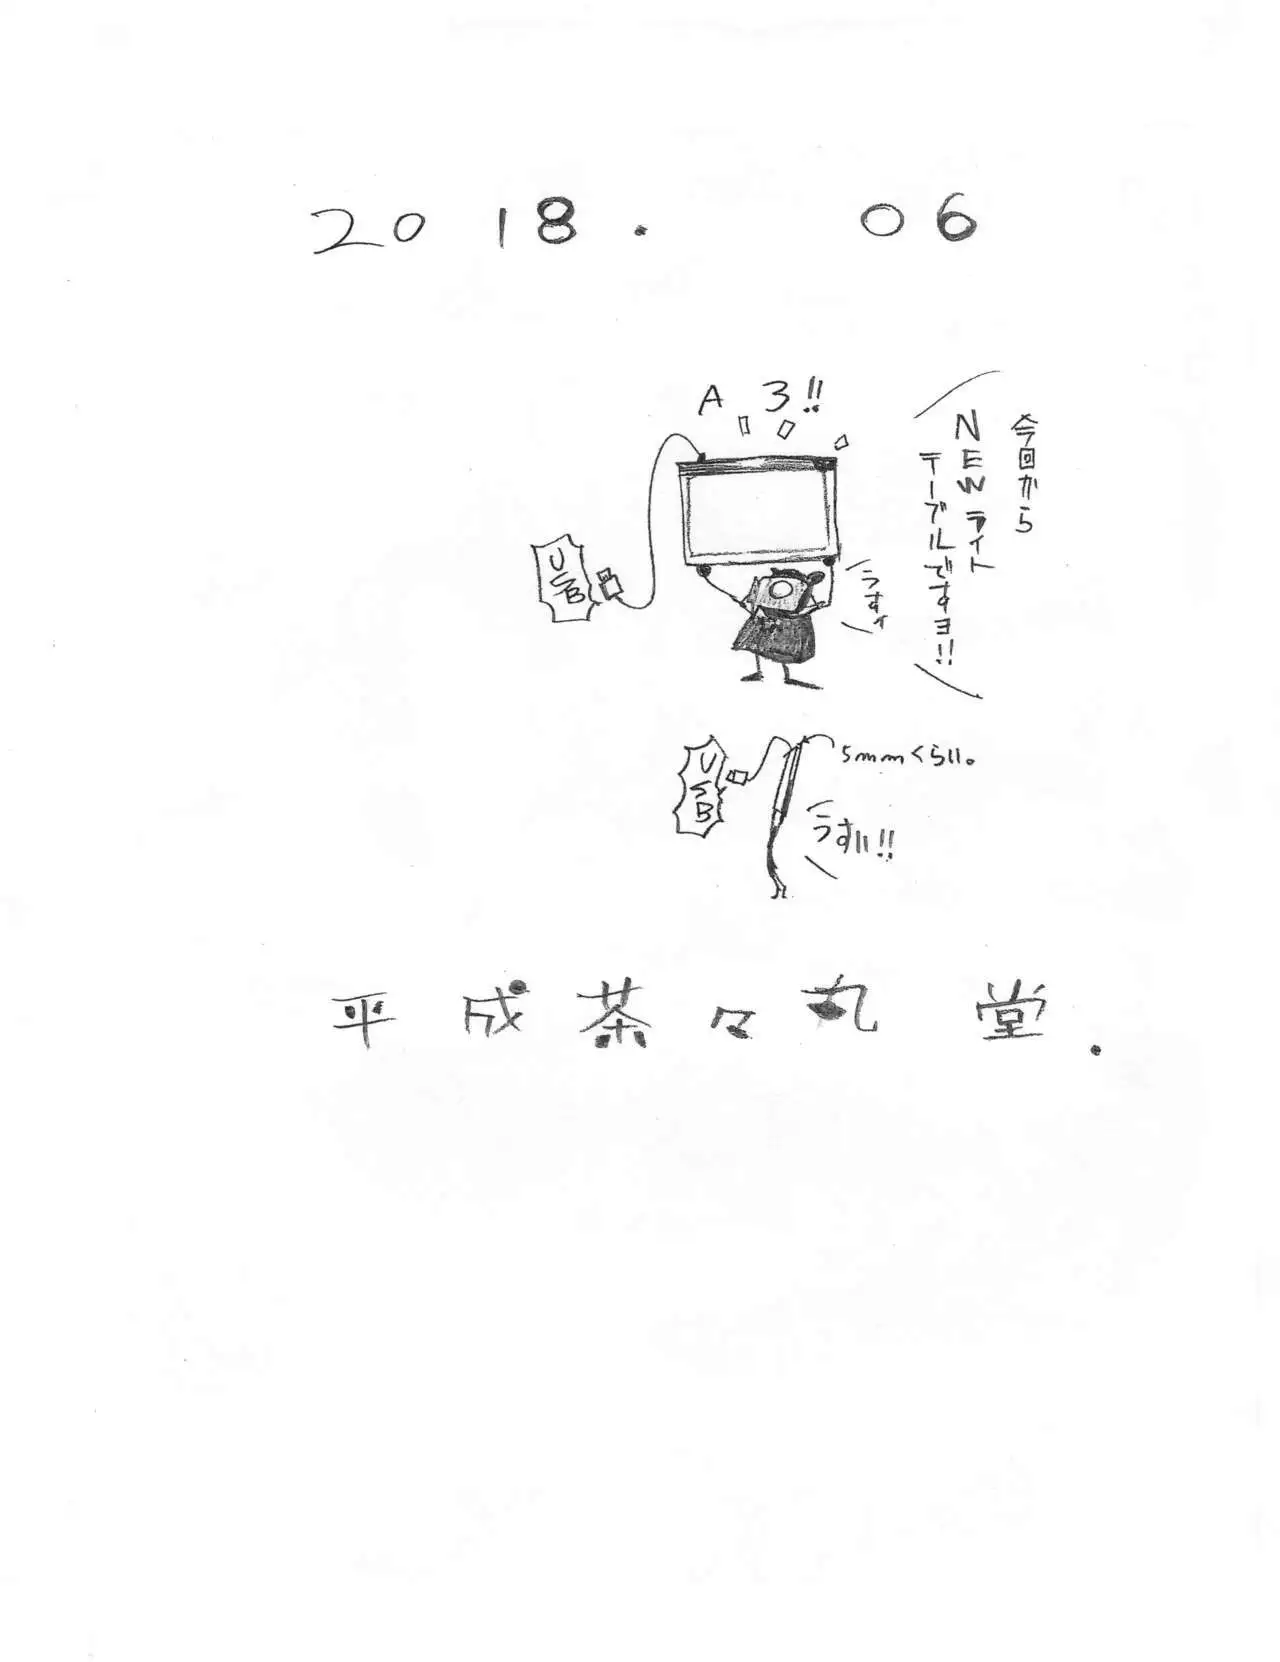 2018. 06
A 3!!
今回から
NEWライト
テーブルですヨ!!
USB
うすイ
USB
5mmくらい。
うすい!!
平成茶々丸堂.